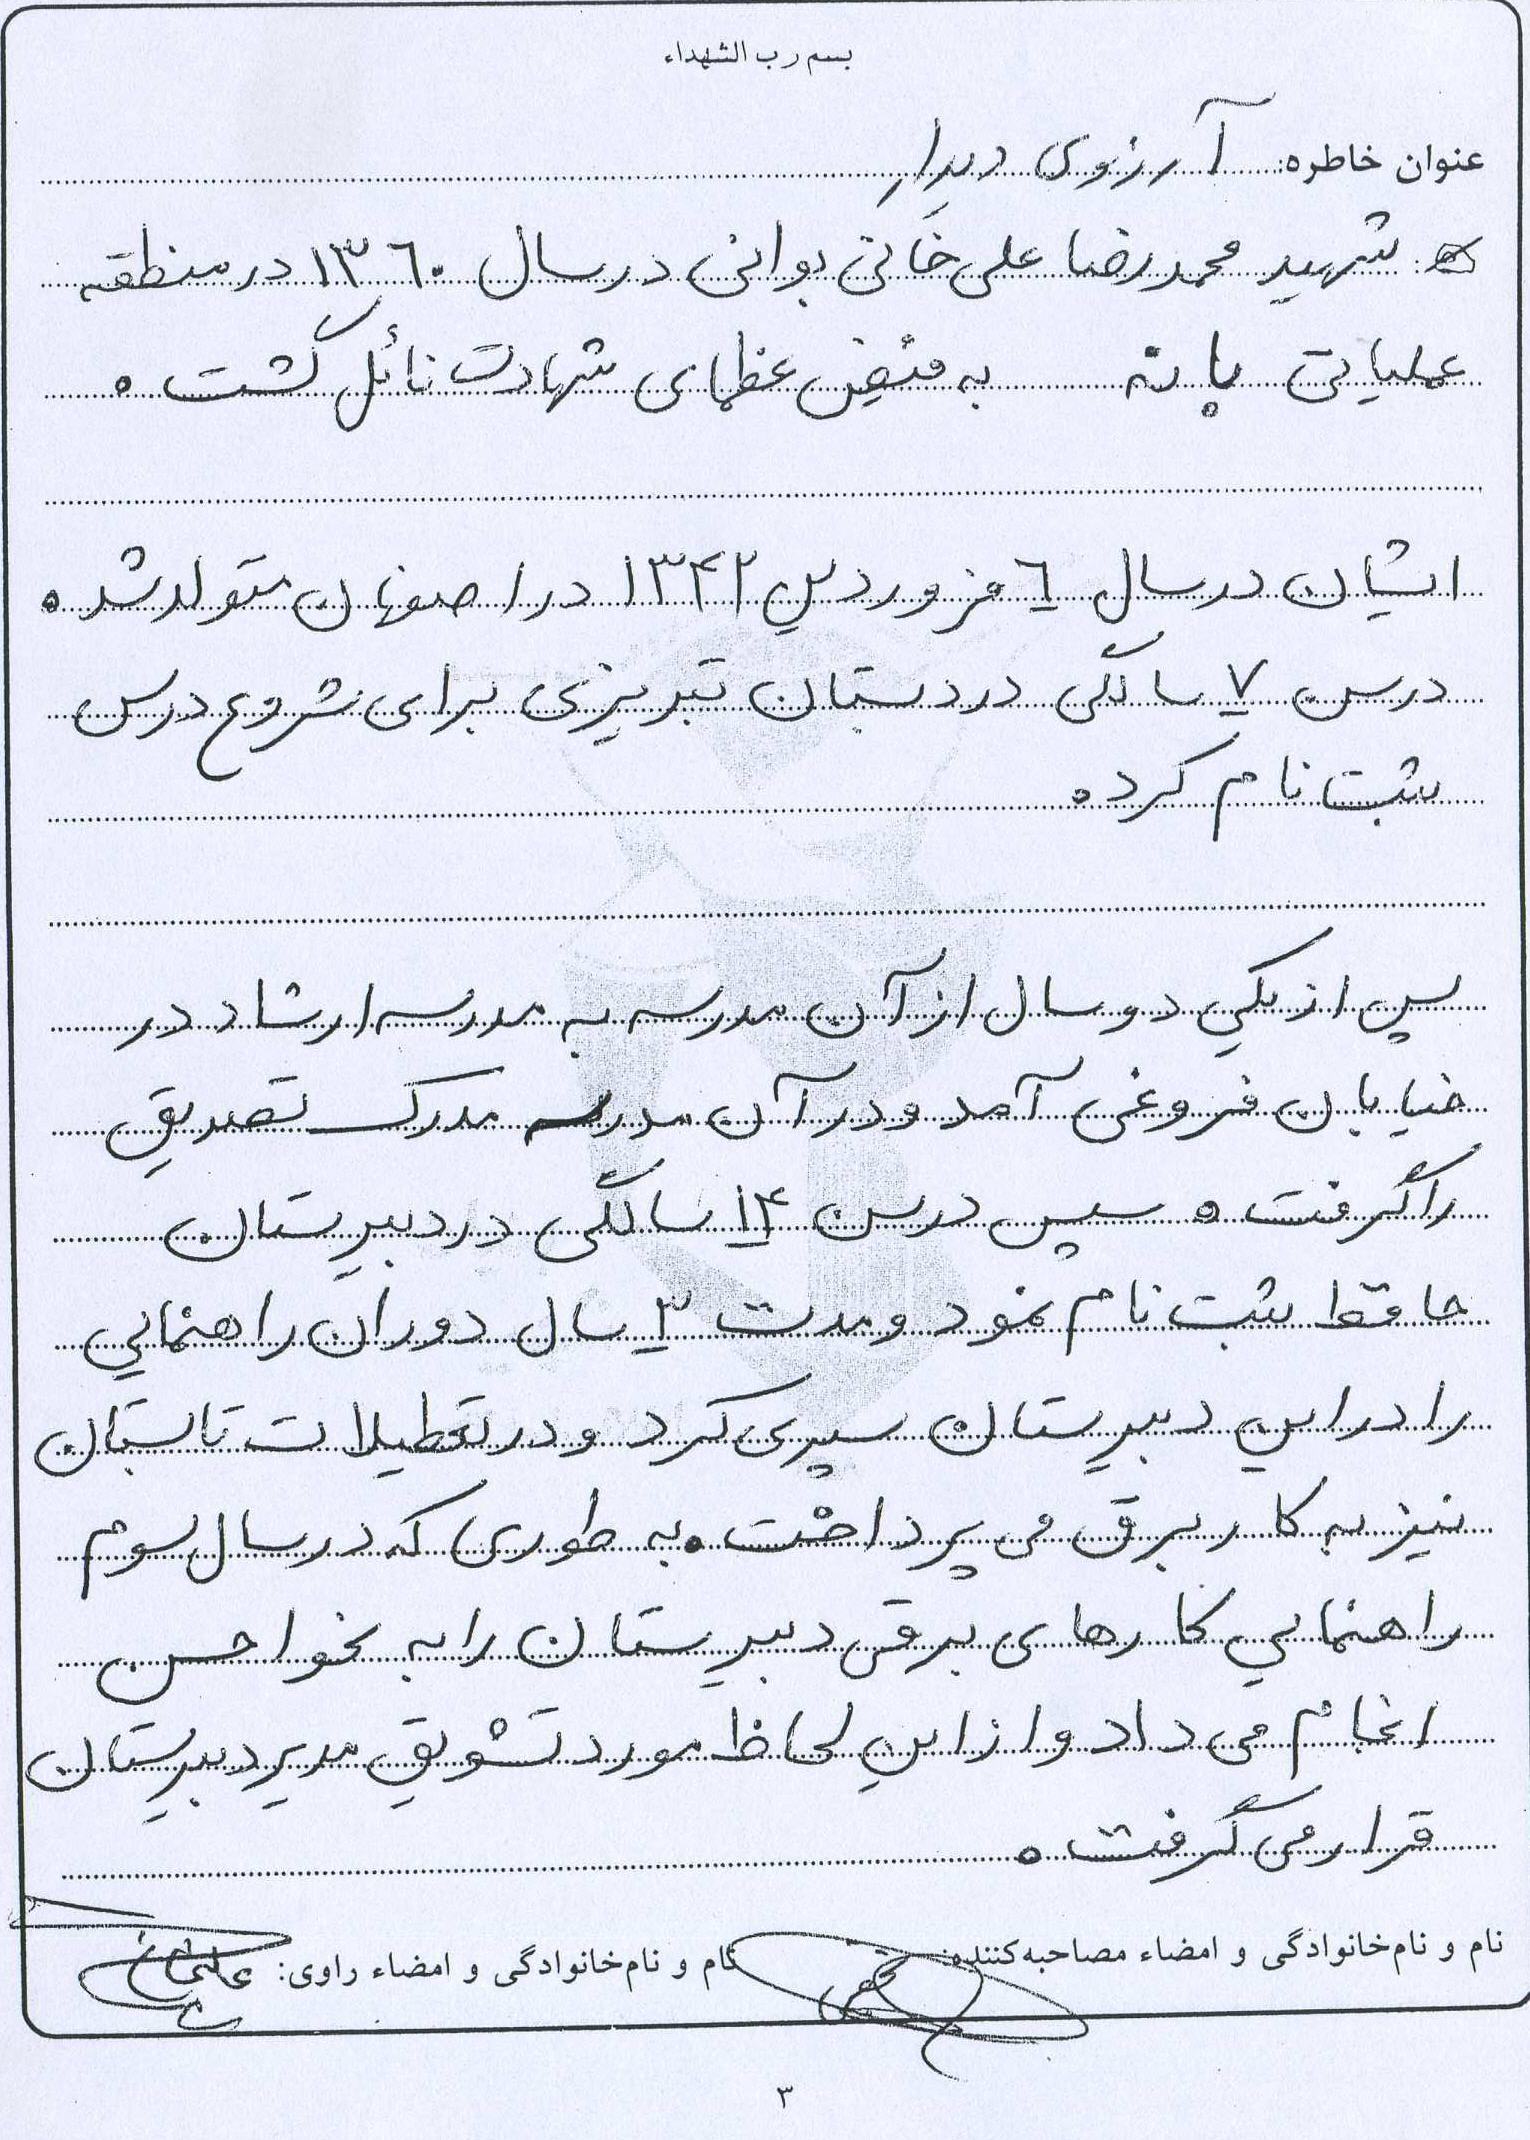 بسم رب الشهداء
عنوان خاطره: آرزوی دیدار
شهید محمدرضا علی خانی بوانی در سال ۱۳۶۰ در منطقه
عملیاتی بانه به فیض عظمای شهادت نائل گشت.
ایشان در سال ۶ فروردین ۱۳۴۲ در اصفهان متولد شد.
در سن ۷ سالگی در دبستان تبریزی برای شروع درس
ثبت نام کرد.
پس از یکی دو سال از آن مدرسه به مدرسه ارشاد در
خیابان فروغی آمد و در آن مدرسه مدرک تصدیق
را گرفت. سپس در سن ۱۴ سالگی در دبیرستان
حافظ ثبت نام نمود و مدت ۳ سال دوران راهنمایی
را در این دبیرستان سپری کرد و در تعطیلات تابستان
نیز به کار برق می پرداخت. به طوری که در سال سوم
راهنمایی کارهای برق دبیرستان را به نحو احسن
انجام می داد و از این لحاظ مورد تشویق مدیر دبیرستان
قرار می گرفت.
نام و نام خانوادگی و امضاء مصاحبه کننده: نام و نام خانوادگی و امضاء راوی:
۳